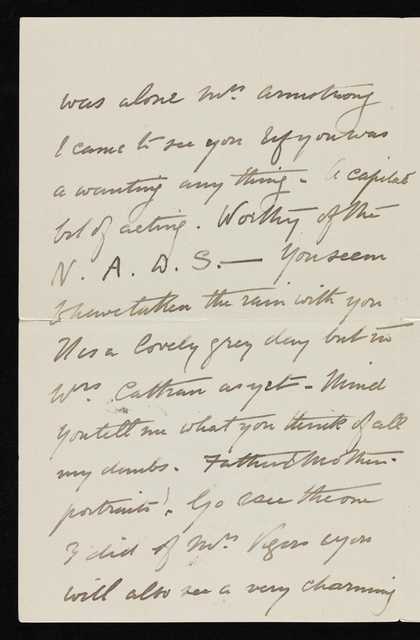 was alone Mrs Armstrong
I came to see you Ef you was
a wanting any thing - A capital
bit of acting. Worthy of the
N. A. D. S. — You seem
to have taken the rain with you
It is a lovely grey day but no
Mrs as yet - Mind
you tell me what you think of all
my daubs. Father & Mother
portraits! Go & see the one
I did of Mrs & you
will also see a very charming